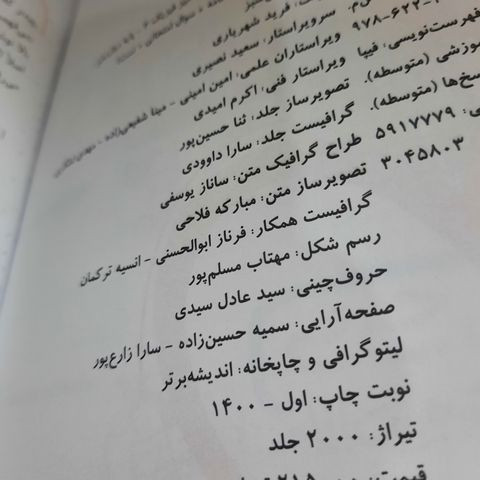 فرید شهریاری
سرویراستار: سعید نصیری
۹۷۸-۶۲۲ ویراستاران علمی: امین امینی - مینا شفیعی‌زاده -
فهرست‌نویسی: فیپا ویراستار فنی: اکرم امیدی
موزشی (متوسطه). تصویرساز جلد: ثنا حسین‌پور
سخ‌ها (متوسطه). گرافیست جلد: سارا داوودی
۵۹۱۷۷۷۹ طراح گرافیک متن: ساناز یوسفی
۳۰۴۵۸۰۳ تصویرساز متن: مبارکه فلاحی
گرافیست همکار: فرناز ابوالحسنی - انسیه ترکمان
رسم شکل: مهتاب مسلم‌پور
حروف‌چینی: سید عادل سیدی
صفحه‌آرایی: سمیه حسین‌زاده - سارا زارع‌پور
لیتوگرافی و چاپخانه: اندیشه‌برتر
نوبت چاپ: اول - ۱۴۰۰
تیراژ: ۲۰۰۰ جلد